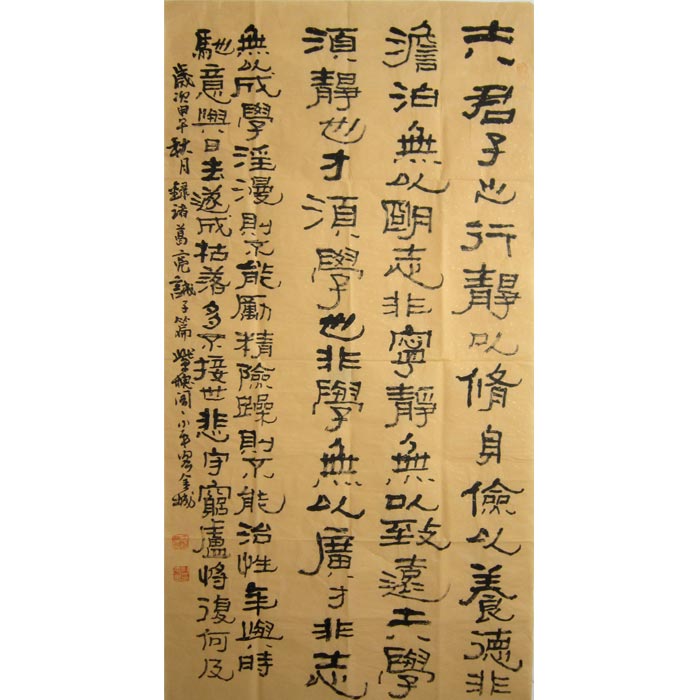 夫君子之行靜以脩身儉以養德非
澹泊無以朙志非寧靜無以致遠夫學
須靜也才須學也非學無以廣才非志
無以成學淫漫則不能勵精險躁則不能治性年與時
馳意與日去遂成枯落多不接世悲守窮廬將復何及
歲次甲午秋月錄諸葛亮誡子篇